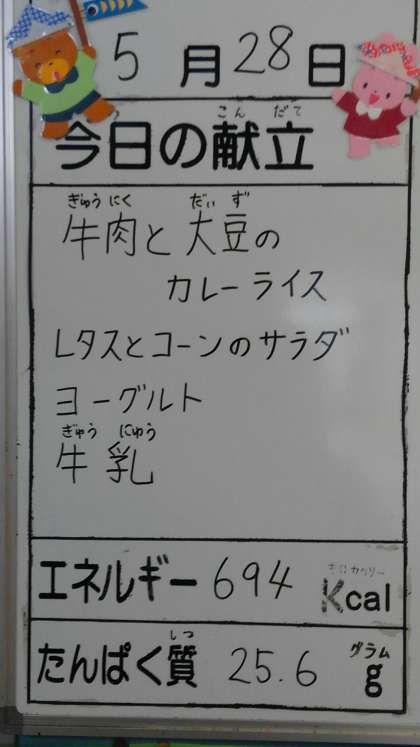 5月28日
こんだて
今日の献立
ぎゅうにく だいず
牛肉と大豆の
カレーライス
レタスとコーンのサラダ
ヨーグルト
ぎゅうにゅう
牛乳
キロカロリー
エネルギー 694 Kcal
しつ グラム
たんぱく質 25.6 g